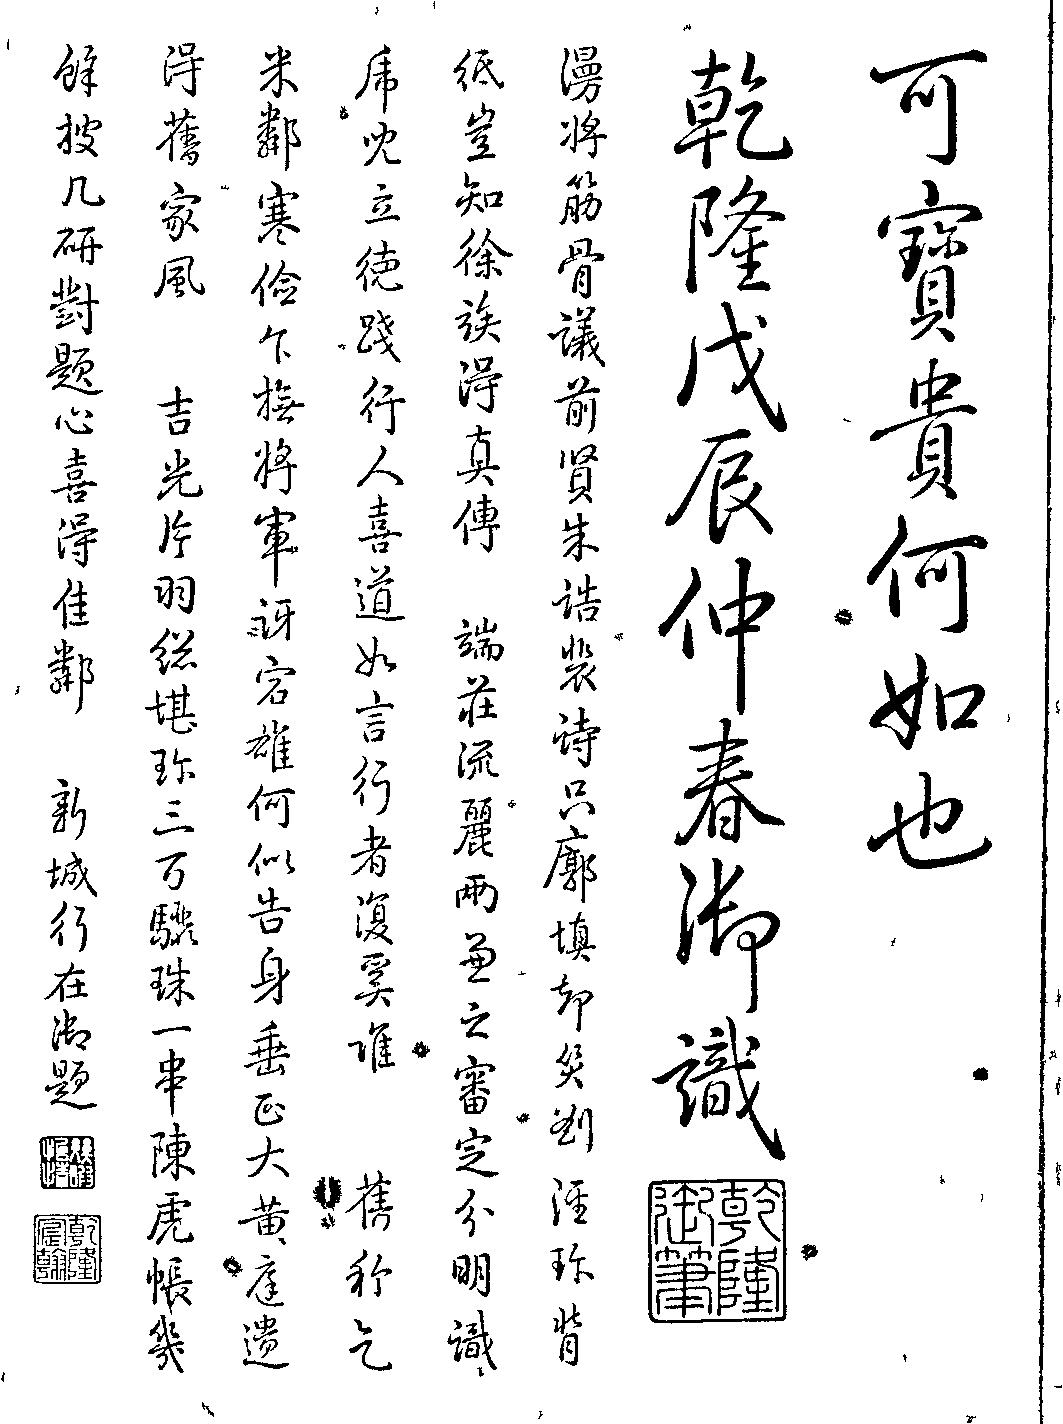 可寶貴何如也
乾隆戊辰仲春御識
乾隆御筆
漫將筋骨議前賢朱誥裴詩只廓填却笑劉涇珎背
紙豈知徐族得真傳 端莊流麗兩兼之審定分明識
乕兒立徳踐行人喜道如言行者復奚誰 舊称乞
米鄰寒儉乍撫將軍訝宕雄何似告身垂正大黄庭遺
得舊家風 吉光片羽総堪珎三百驪珠一串陳虎帳幾
餘披几研對題心喜得佳鄰 新城行在御題
乾隆宸翰